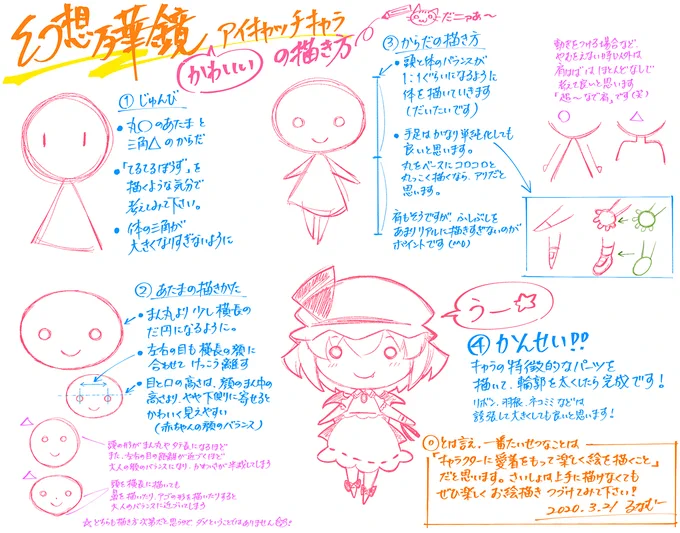 幻想万華鏡 アイキャッチキャラ
かわいい の描き方
だニャあ〜
① じゅんび
・丸○のあたまと
三角△のからだ
・「てるてるぼうず」を
描くような気分で
考えてみて下さい。
・体の三角が
大きくなりすぎないように
② あたまの描きかた
・まん丸より少し横長の
だ円になるように。
・左右の目も横長の顔に
合わせてけっこう離す
・目と口の高さは、顔のまん中の
高さより、やや下側に寄せると
かわいく見えやすい
(赤ちゃんの顔のバランス)
△
頭の形がまん丸やタテ長になるほど
また、左右の目の距離が近づくほど
大人の顔のバランスになり、かわいさが半減してしまう
△
顔を横長に描いても
鼻を描いたり、アゴの形を描いたりすると
大人のバランスに近づいてしまう
☆どちらも描き方次第だと思うので、ダメということではありません
③ からだの描き方
・頭と体のバランスが
1:1ぐらいになるように
体を描いていきます
(だいたいです)
・手足はかなり単純化しても
良いと思います。
丸をベースにコロコロと
丸っこく描くなら、アリだと
思います。
肩もそうですが、ふしぶしを
あまりリアルに描きすぎないのが
ポイントです
動きをつける場合など、
やむをえない時以外は
肩はばはほとんどなしで
考えて良いと思います
「超〜なで肩」です(笑)
○ △
うー☆
④ かんせい!!
キャラの特徴的なパーツを
描いて、輪郭を太くしたら完成です!
リボン、羽根、ネコミミなどは
誇張して大きくしても良いと思います!
◎とは言え、一番たいせつなことは
「キャラクターに愛着をもって楽しく絵を描くこと」
だと思います。さいしょは上手に描けなくても
ぜひ楽しくお絵描きつづけてみて下さい!
2020.3.21